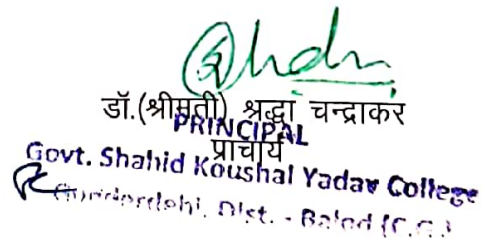 डॉ.(श्रीमती) श्रद्धा चन्द्राकर
PRINCIPAL
प्राचार्य
Govt. Shahid Koushal Yadav College
Gunderdehi, Dist. - Balod (C.G.)